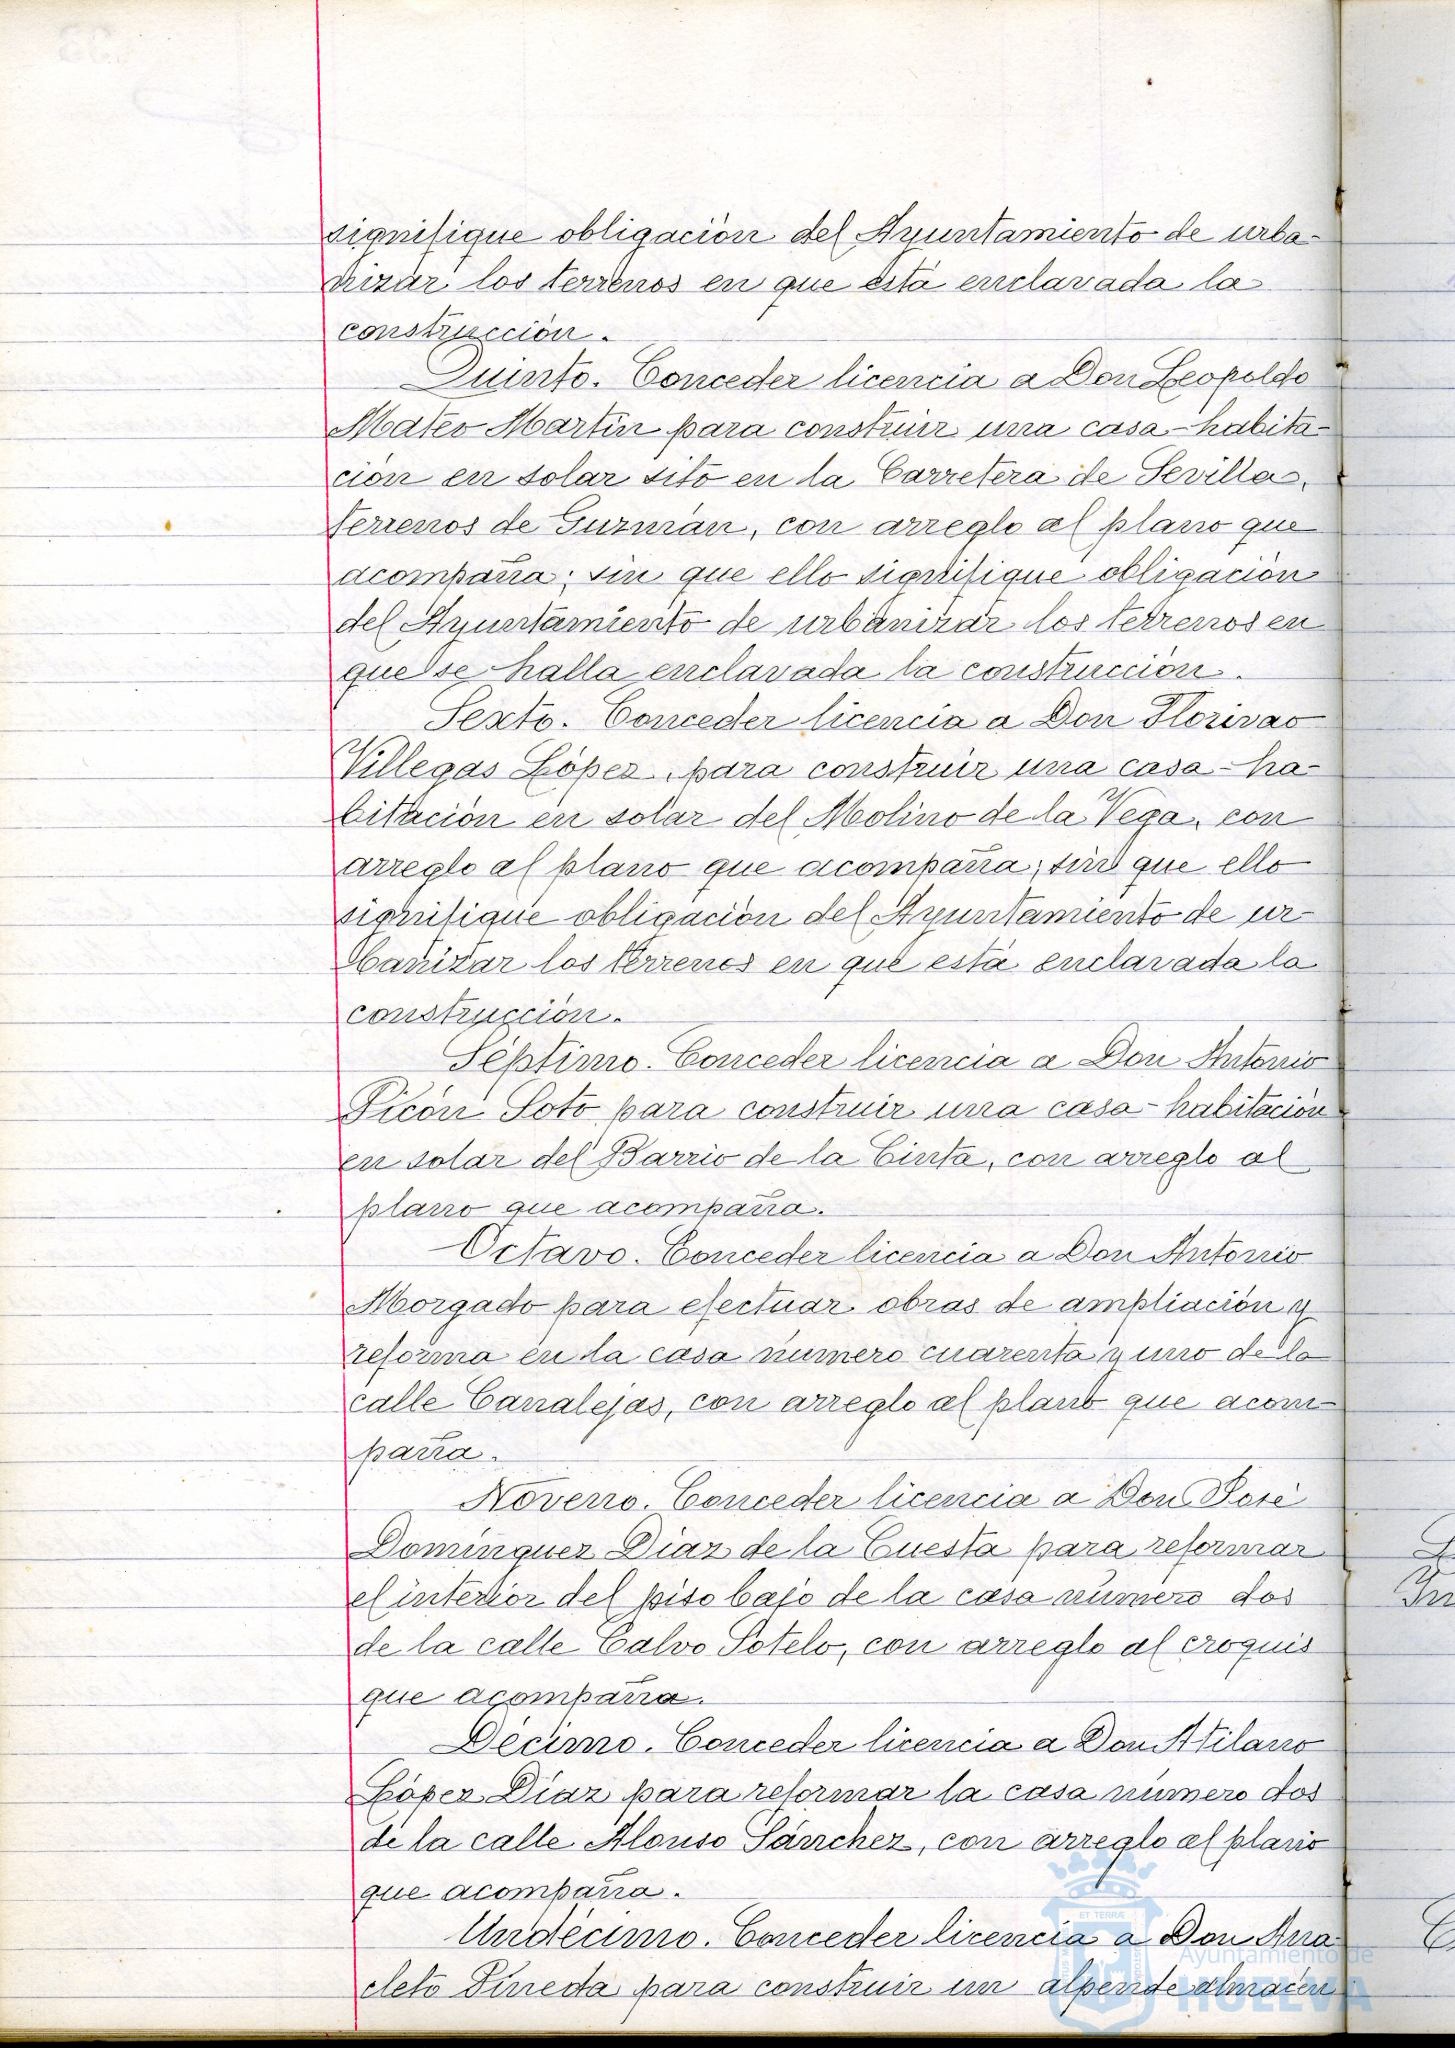 signifique obligación del Ayuntamiento de urba-
nizar los terrenos en que está enclavada la
construcción.
Quinto. Conceder licencia a Don Leopoldo
Mateo Martín para construir una casa-habita-
ción en solar sito en la Carretera de Sevilla,
terrenos de Guzmán, con arreglo al plano que
acompaña; sin que ello signifique obligación
del Ayuntamiento de urbanizar los terrenos en
que se halla enclavada la construcción.
Sexto. Conceder licencia a Don
Villegas López, para construir una casa-ha-
bitación en solar del Molino de la Vega, con
arreglo al plano que acompaña; sin que ello
signifique obligación del Ayuntamiento de ur-
banizar los terrenos en que está enclavada la
construcción.
Séptimo. Conceder licencia a Don Antonio
Picón Soto para construir una casa-habitación
en solar del Barrio de la Cinta, con arreglo al
plano que acompaña.
Octavo. Conceder licencia a Don Antonio
Morgado para efectuar obras de ampliación y
reforma en la casa número cuarenta y uno de la
calle Canalejas, con arreglo al plano que acom-
paña.
Noveno. Conceder licencia a Don José
Domínguez Díaz de la Cuesta para reformar
el interior del piso bajo de la casa número dos
de la calle Calvo Sotelo, con arreglo al croquis
que acompaña.
Décimo. Conceder licencia a Don Atilano
López Díaz para reformar la casa número dos
de la calle Alonso Sánchez, con arreglo al plano
que acompaña.
Undécimo. Conceder licencia a Don Ana
cleto Pineda para construir un alpende almacén
ET TERRÆ
Ayuntamiento de
HUELVA